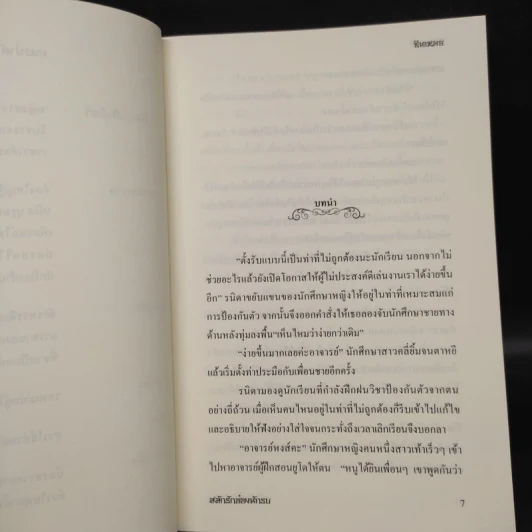 บทนำ
“ตั้งรับแบบนี้เป็นท่าที่ไม่ถูกต้องนะนักเรียน นอกจากไม่
ช่วยอะไรแล้วยังเปิดโอกาสให้ผู้ไม่ประสงค์ดีเล่นงานเราได้ง่ายขึ้น
อีก” รนิดาขยับแขนของนักศึกษาหญิงให้อยู่ในท่าที่เหมาะสมแก่
การป้องกันตัว จากนั้นจึงออกคำสั่งให้เธอลองจับนักศึกษาชายทาง
ด้านหลังทุ่มลงพื้น “เห็นไหมว่าง่ายกว่าเดิม”
“ง่ายขึ้นมากเลยค่ะอาจารย์” นักศึกษาสาวคลี่ยิ้มจนตาหยี
แล้วเริ่มตั้งท่าประมือกับเพื่อนชายอีกครั้ง
รนิดามองดูนักเรียนที่กำลังฝึกฝนวิชาป้องกันตัวจากตน
อย่างถี่ถ้วน เมื่อเห็นคนไหนอยู่ในท่าที่ไม่ถูกต้องก็รีบเข้าไปแก้ไข
และอธิบายให้ฟังอย่างใส่ใจจนกระทั่งถึงเวลาเลิกเรียนจึงบอกลา
“อาจารย์หงส์คะ” นักศึกษาหญิงคนหนึ่งสาวเท้าเร็วๆ เข้า
ไปหาอาจารย์ผู้ฝึกสอนยูโดให้ตน “หนูได้ยินเพื่อนๆ เขาพูดกันว่า
สลักรักซ่อนพักรบ
7